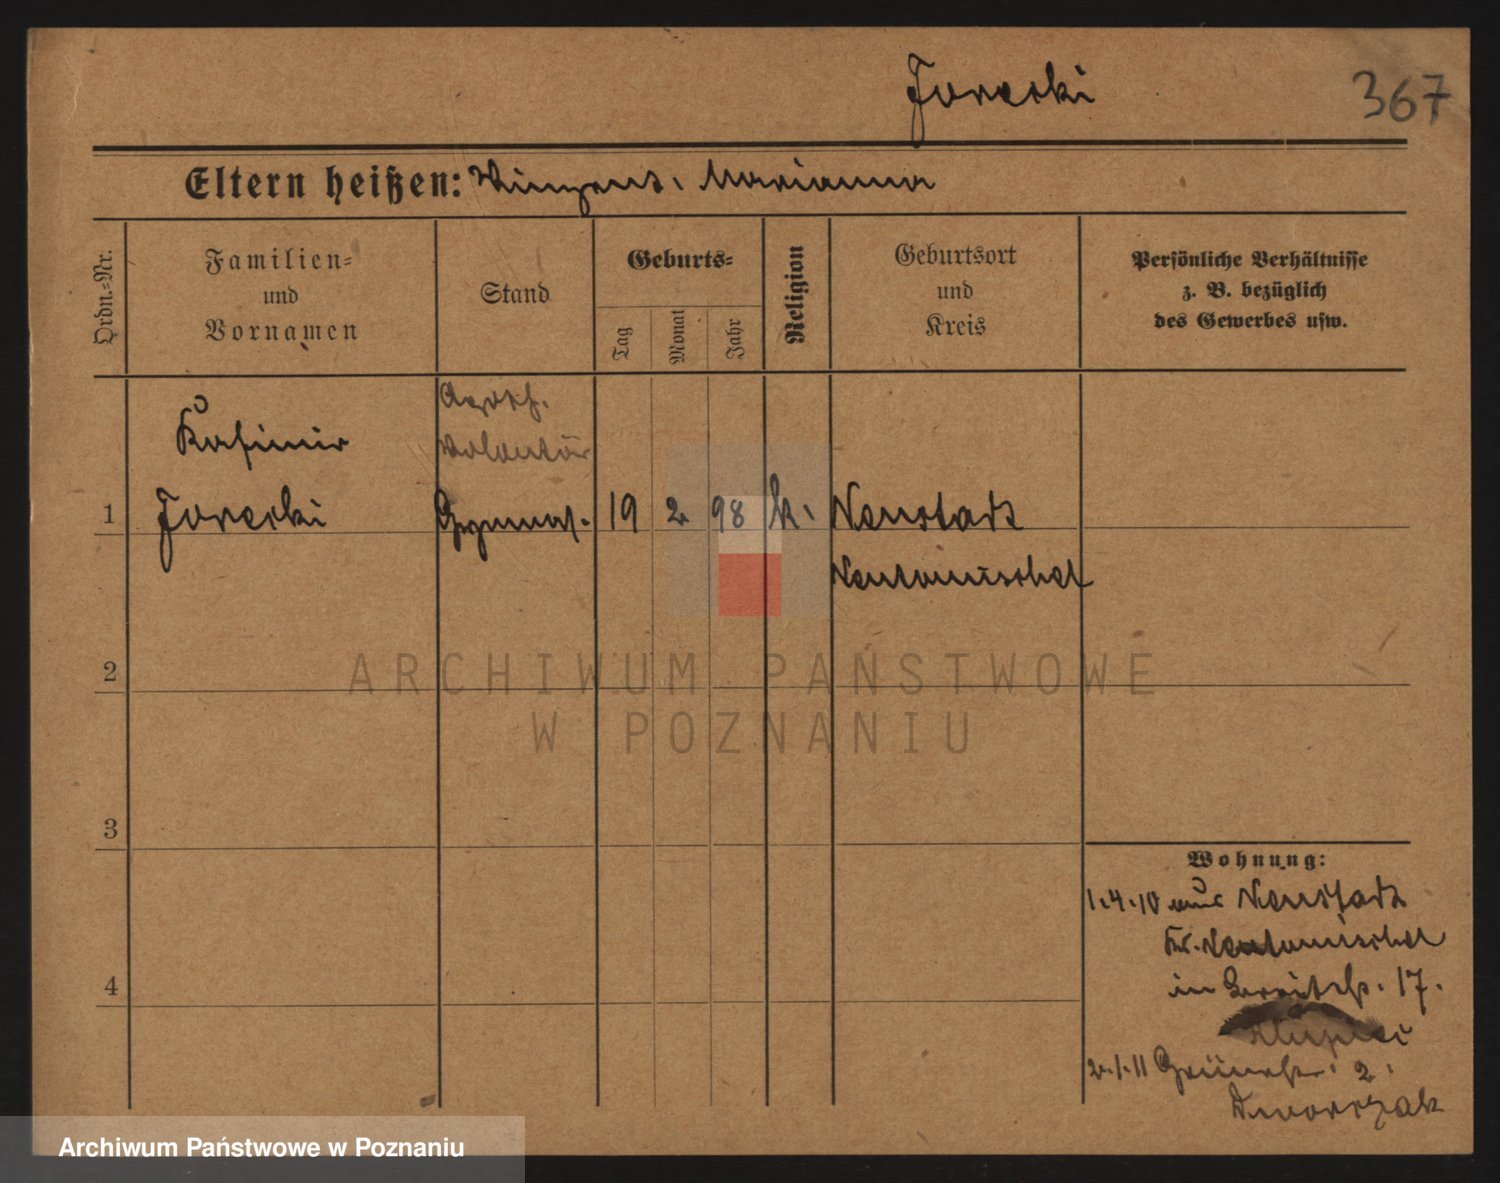 Jorecki
367
Eltern heißen: Vinzens. Marianna
Ordn.-Nr.
Familien-
und
Vornamen
Stand
Geburts-
Tag
Monat
Jahr
Religion
Geburtsort
und
Kreis
Persönliche Verhältnisse
z. B. bezüglich
des Gewerbes usw.
Apoth.
Volontär
Kasimir
1 Jorecki Gymnas. 19 2 98 k. Neustadt
Neutomischel
2
3
4
ARCHIWUM PAŃSTWOWE
W POZNANIU
Wohnung:
1.4.10 aus Neustadt
Kr. Neutomischel
in 17.
2.1.11 Grünestr. 2.
Dworczak
Archiwum Państwowe w Poznaniu